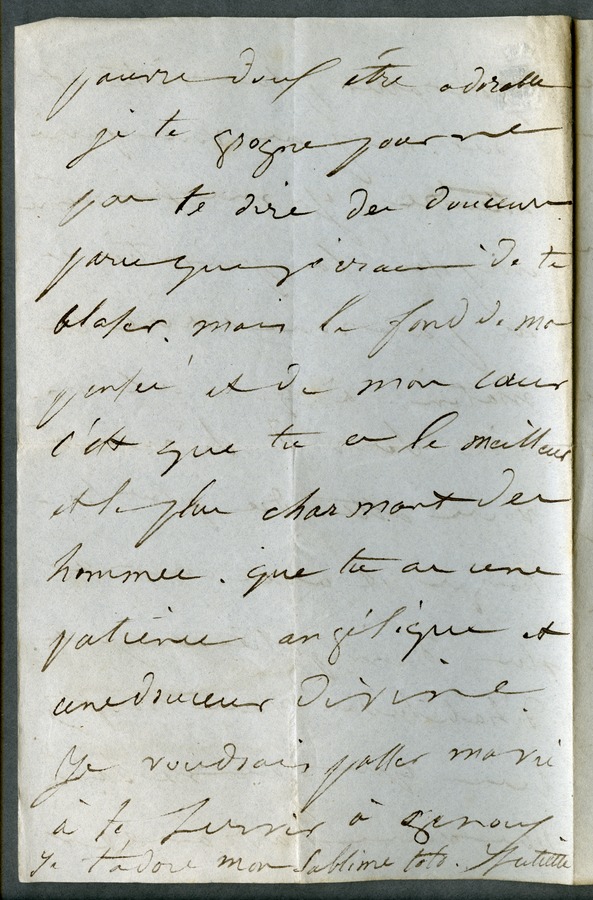 pauvre doux être adorable
je te grogne pour ne
pas te dire des douceurs
parce que je crains de te
blaser. mais le fond de ma
pensée et de mon cœur
c'est que tu es le meilleur
et le plus charmant des
hommes. que tu as une
patience angélique et
une douceur divine
Je voudrais passer ma vie
à te servir à genoux
Je t'adore mon sublime toto. Juliette